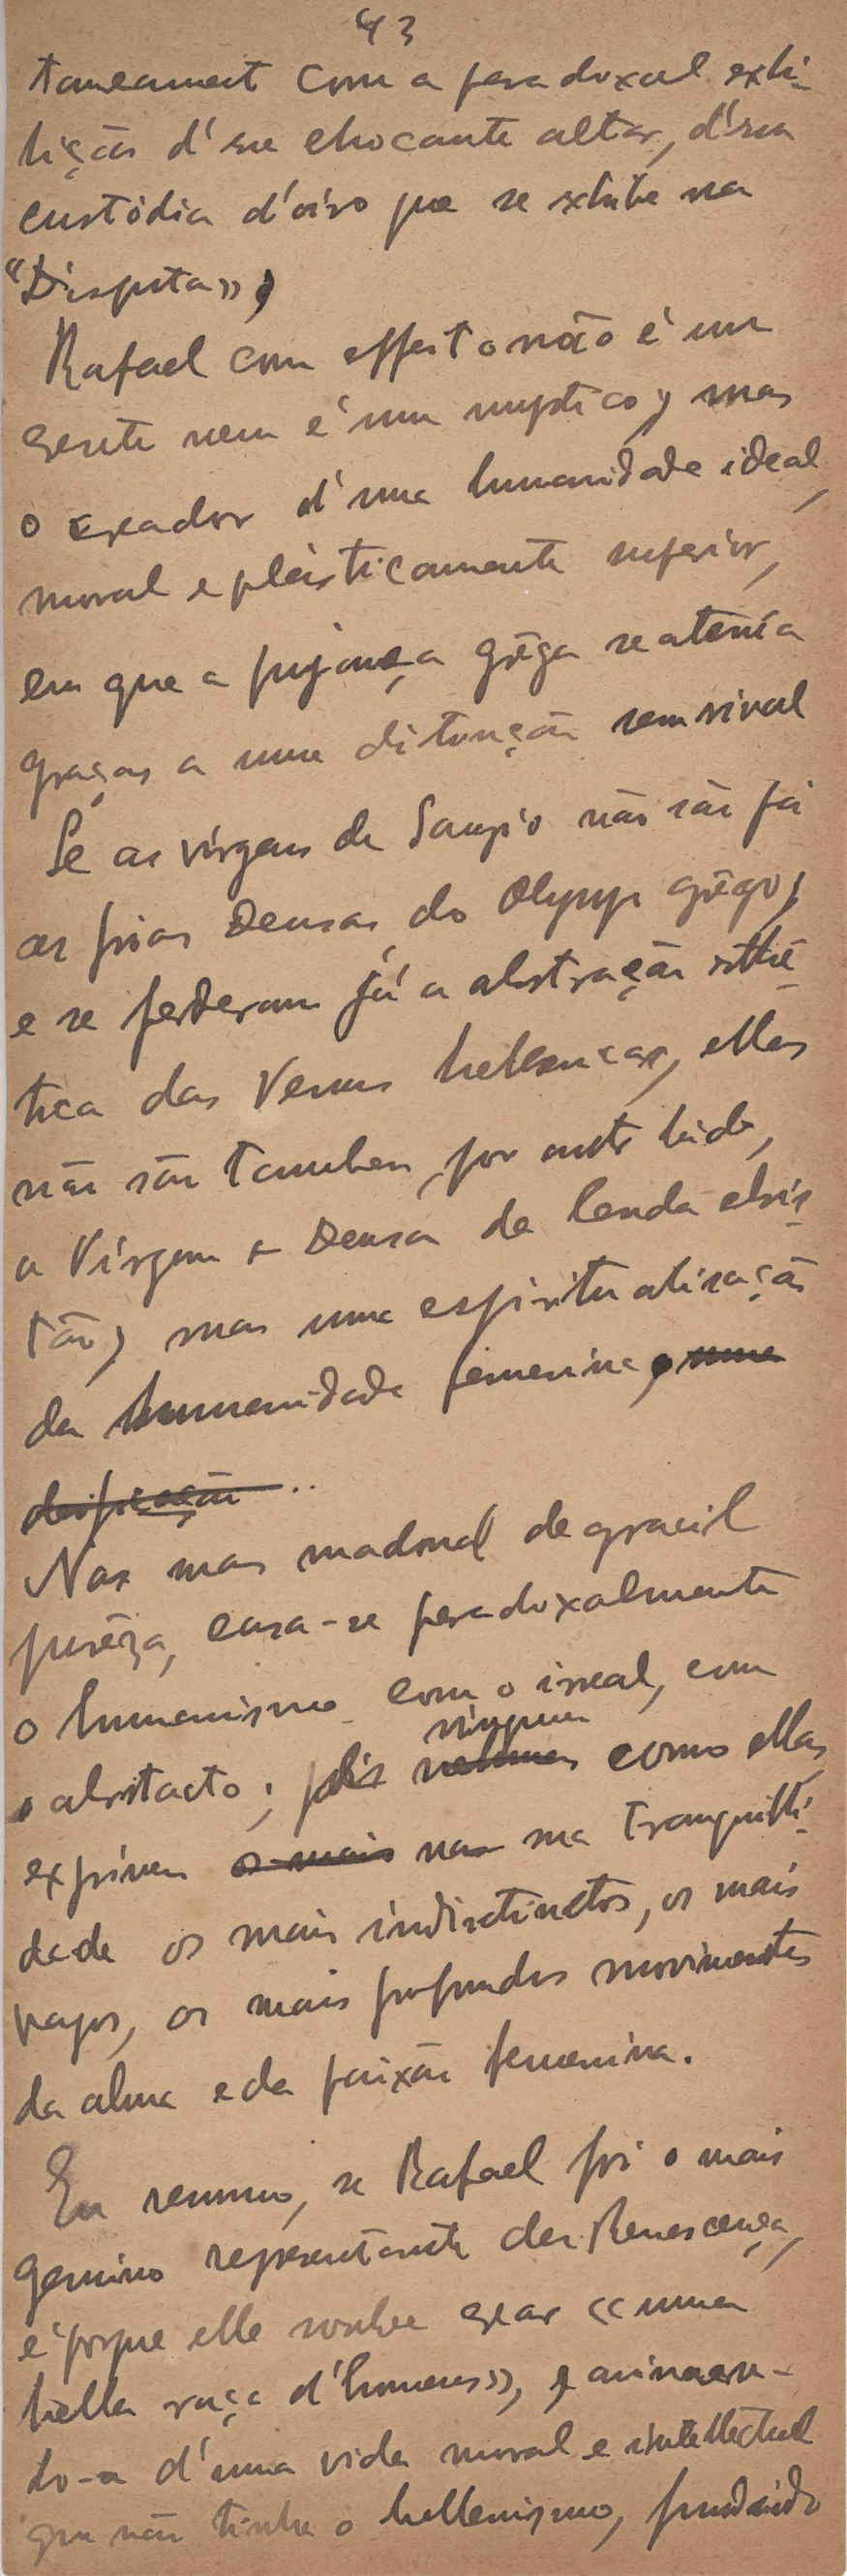 43
taneament com a paradoxal exhi-
bição d'esse chocante altar, d'essa
custódia d'oiro que se exhibe na
"Disputa»,
Rafael com effeito não é um
crente nem é um mystico, mas
o creador d'uma humanidade ideal,
moral e plàsticamente superior,
em que a pujança grêga se atenúa
graças a uma distinção sem rival
Se as vírgens de Sanzio não são já
as frias Deusas do Olympo grêgo,
e se perderam já a abstração esthé-
tica das Venus hellenicas, ellas
não são tambem, por outro lado,
a Vírgem e Deusa da lenda chris-
tão, mas uma espiritualisação
da humanidade femenina, uma
deificação ..
Nas mas madonas de gracil
purêza, casa-se paradoxalmente
o humanismo com o irreal, com
o abstracto; pois
ninguem
como ellas,
exprimem os mais na sua tranquilli-
dade os mais indistinctos, os mais
vagos, os mais profundos movimentos
da alma e da paixão femenina.
Em resumo, se Rafael foi o mais
genuino representante da Renascença,
é porque elle soube crear «uma
bella raça d'homens», e animan-
do-a d'uma vida moral e intellectual
que não tinha o hellenismo, fundindo